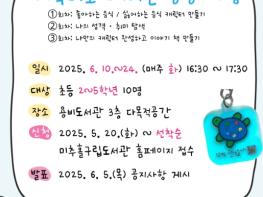 ①회차: 좋아하는 음식 / 싫어하는 음식 캐릭터 만들기
②회차: 나의 성격 · 취미 탐색
③회차: 나만의 캐릭터 완성하고 이야기 책 만들기
일시 2025. 6. 10.~24. (매주 화) 16:30 ~ 17:30
대상 초등 2~5학년 10명
장소 용비도서관 3층 다목적공간
신청 2025. 5. 20.(화) ~ 선착순
미추홀구립도서관 홈페이지 접수
발표 2025. 6. 5.(목) 공지사항 게시